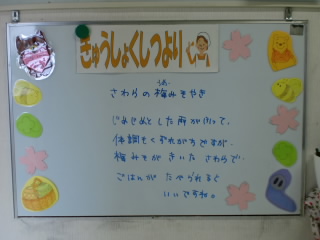 きゅうしょくしつより
うめ
さわらの梅みそやき
じめじめとした雨が降って、
体調もくずれがちですが、
梅みそがきいたさわらで、
ごはんがたべられると
いいですね。